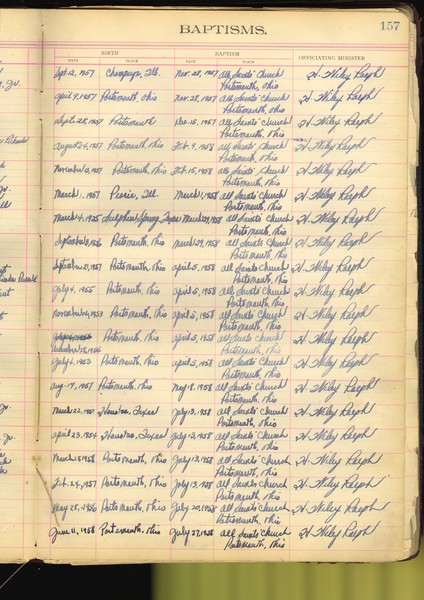 BAPTISMS.
157
BIRTH BAPTISM OFFICIATING MINISTER
DATE PLACE DATE PLACE
Sept. 12, 1957 Champaign, Ill. Nov. 28, 1957 All Saints' Church H. Wiley Ralph
Portsmouth, Ohio
April 9, 1957 Portsmouth, Ohio Nov. 28, 1957 All Saints' Church H. Wiley Ralph
Portsmouth, Ohio
Sept. 28, 1957 Portsmouth Dec. 15, 1957 All Saints' Church H. Wiley Ralph
Portsmouth, Ohio
August 24, 1957 Portsmouth, Ohio Feb. 9, 1958 All Saints' Church H. Wiley Ralph
Portsmouth, Ohio
November 2, 1957 Portsmouth, Ohio Feb. 15, 1958 All Saints' Church H. Wiley Ralph
Portsmouth, Ohio
March 1, 1957 Peoria, Ill. March 1, 1958 All Saints' Church H. Wiley Ralph
Portsmouth, Ohio
March 4, 1925 Sulphur Springs, Texas March 29, 1958 All Saints' Church H. Wiley Ralph
Portsmouth, Ohio
September 3, 1956 Portsmouth, Ohio March 29, 1958 All Saints' Church H. Wiley Ralph
Portsmouth, Ohio
September 21, 1957 Portsmouth, Ohio April 5, 1958 All Saints' Church H. Wiley Ralph
Portsmouth, Ohio
July 4, 1955 Portsmouth, Ohio April 5, 1958 All Saints' Church H. Wiley Ralph
Portsmouth, Ohio
November 6, 1953 Portsmouth, Ohio April 5, 1958 All Saints' Church H. Wiley Ralph
Portsmouth, Ohio
Portsmouth, Ohio April 5, 1958 All Saints' Church H. Wiley Ralph
Portsmouth, Ohio
July 6, 1953 Portsmouth, Ohio April 5, 1958 All Saints' Church H. Wiley Ralph
Portsmouth, Ohio
Aug. 17, 1957 Portsmouth, Ohio May 18, 1958 All Saints' Church H. Wiley Ralph
Portsmouth, Ohio
March 22, 1951 Houston, Texas July 13, 1958 All Saints' Church H. Wiley Ralph
Portsmouth, Ohio
April 23, 1954 Houston, Texas July 13, 1958 All Saints' Church H. Wiley Ralph
Portsmouth, Ohio
March 18, 1958 Portsmouth, Ohio July 13, 1958 All Saints' Church H. Wiley Ralph
Portsmouth, Ohio
Feb. 24, 1957 Portsmouth, Ohio July 13, 1958 All Saints' Church H. Wiley Ralph
Portsmouth, Ohio
May 28, 1956 Portsmouth, Ohio July 20, 1958 All Saints' Church H. Wiley Ralph
Portsmouth, Ohio
June 11, 1958 Portsmouth, Ohio July 27, 1958 All Saints' Church H. Wiley Ralph
Portsmouth, Ohio